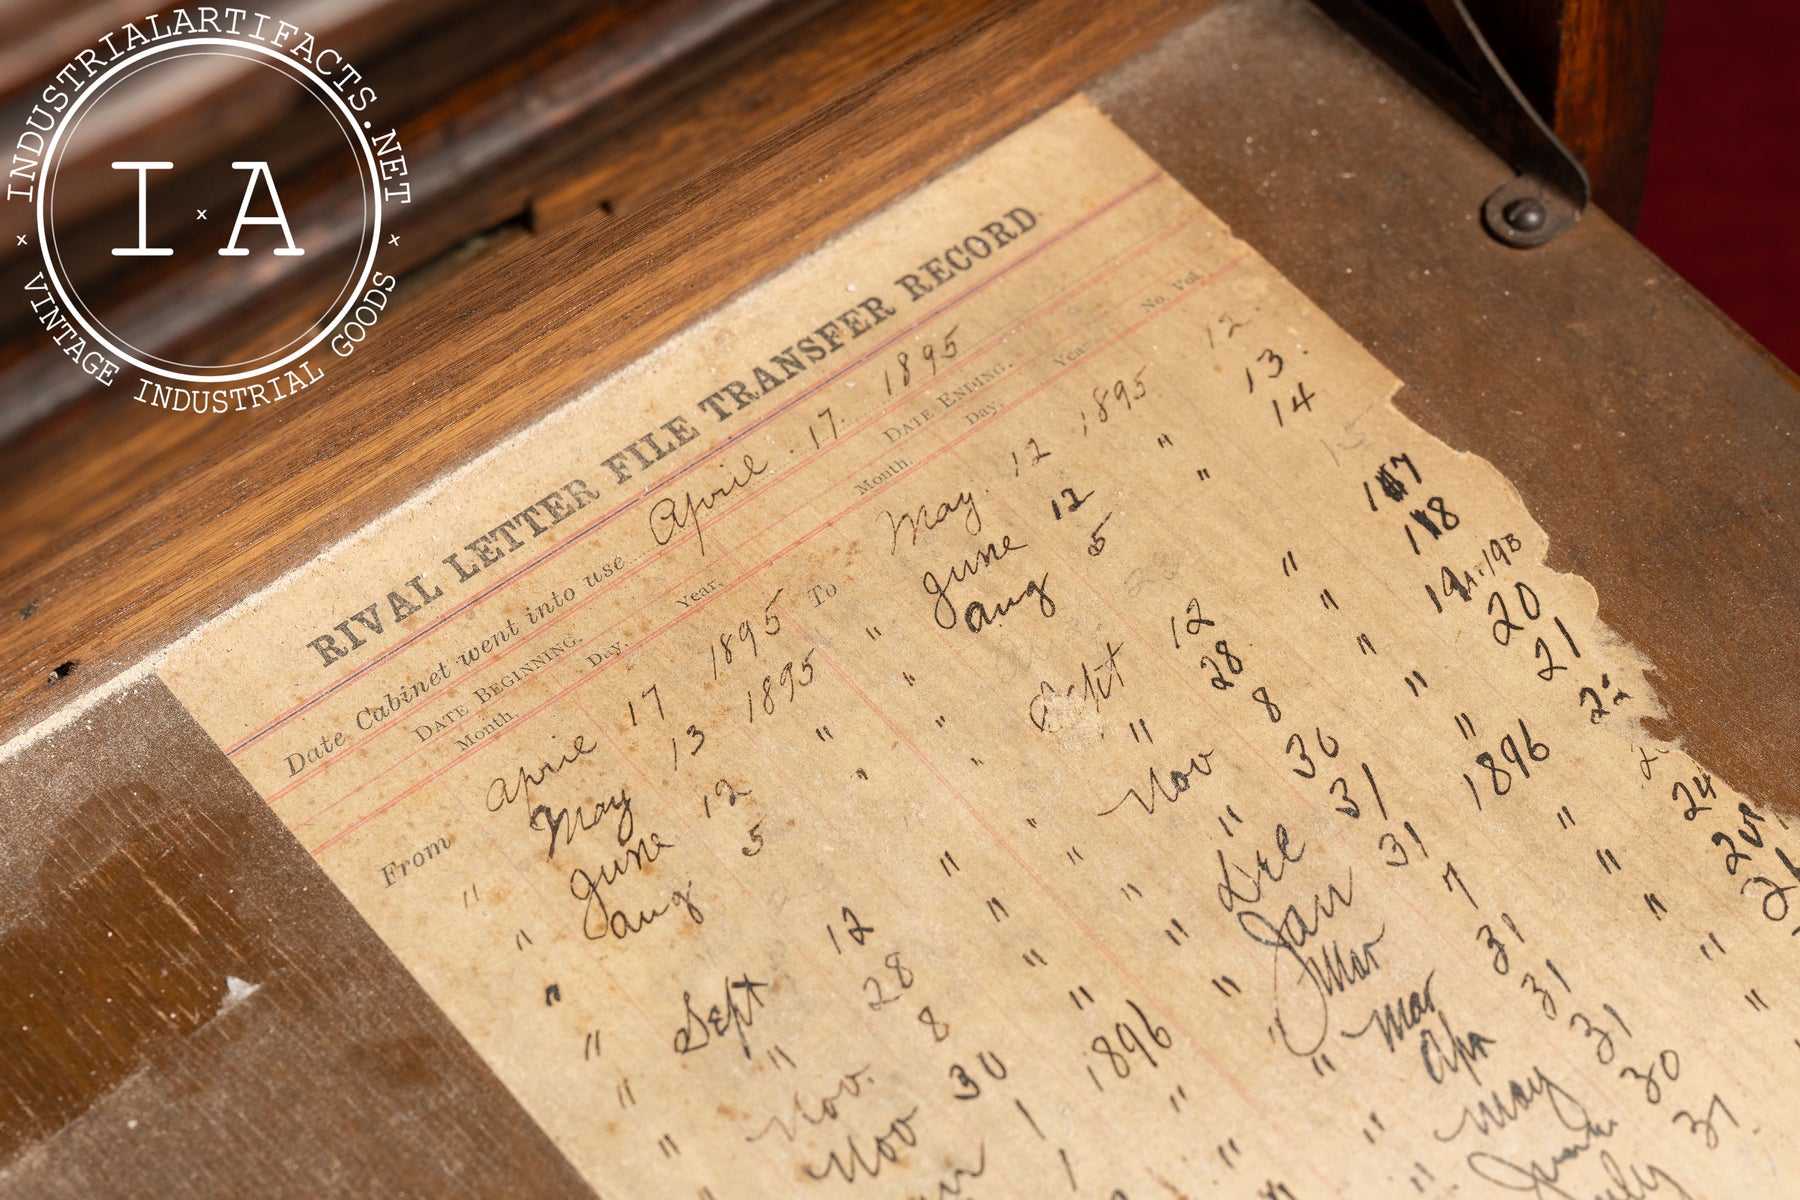 INDUSTRIALARTIFACTS.NET
I x A
x x
VINTAGE INDUSTRIAL GOODS
RIVAL LETTER FILE TRANSFER RECORD.
Date Cabinet went into use April. 17 1895
DATE BEGINNING. DATE ENDING.
Month. Day. Year. Month. Day. Year. No. Vol.
From April 17 1895 To May. 12 1895. 12.
" May 13 1895 " June 12 " 13.
" June 12 " " Aug 5 " 14
" Aug 5 " "
" Sept 12 " " Sept 12 " 17
" " 28 " " " 28 " 18
" Nov. 8 " " Nov 8 " 19A. 19B
" Nov 30 " " " 30 " 20
1 1896 " Dec 31 " 21
1 " " Jan 31 1896 22
" " Mar 7 "
" Mar 31 " 24
" Apr 31 "
" May 31 "
June 30 "
July 31